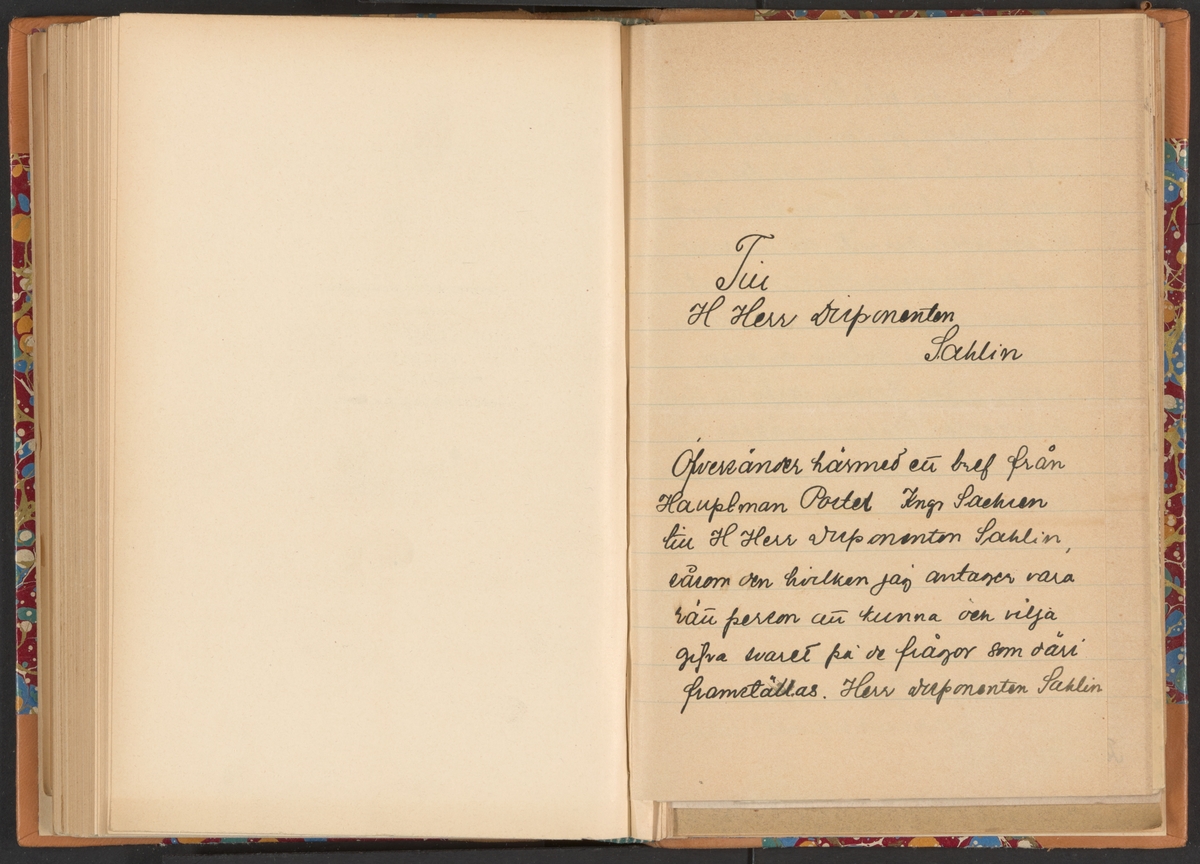 Till
H Herr Disponenten
Sahlin
Öfversänder härmed ett bref från
Hauptman Postel Kngr Sachsen
till H Herr Disponenten Sahlin,
såsom den hvilken jag antager vara
rätt person att kunna och vilja
gifva svaret på de frågor som däri
framställas. Herr Disponenten Sahlin